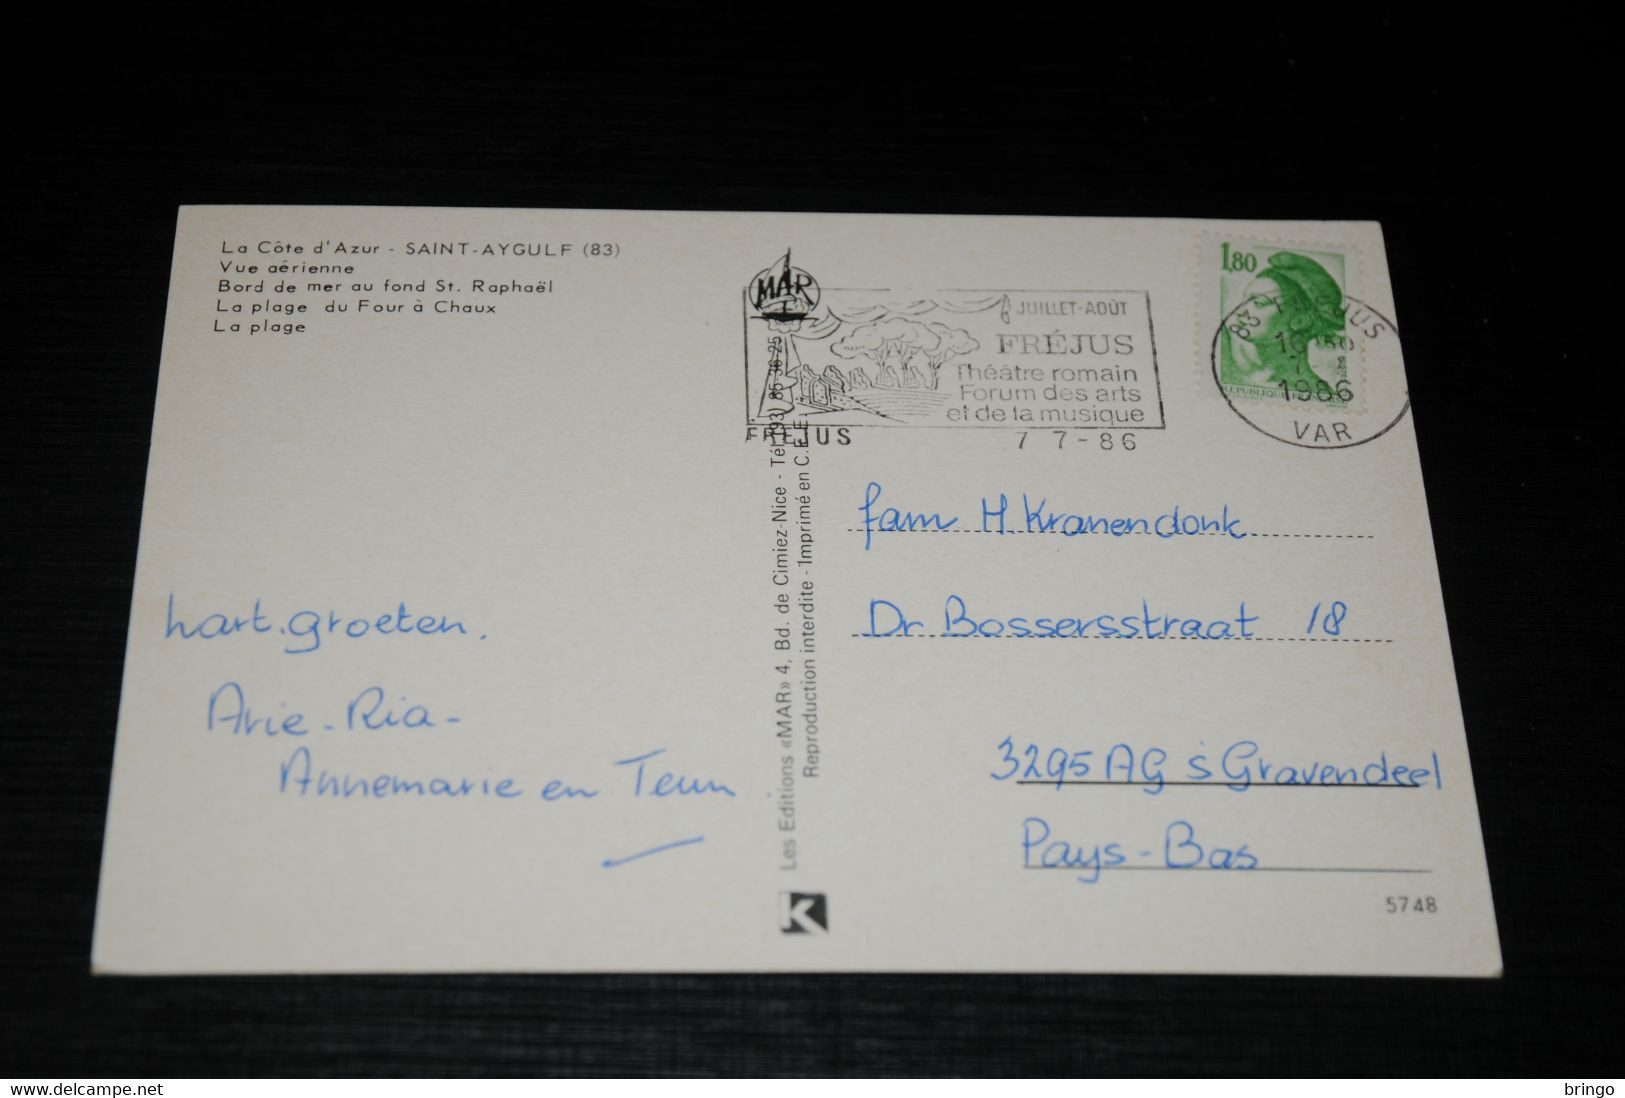 La Côte d'Azur - SAINT-AYGULF (83)
Vue aérienne
Bord de mer au fond St. Raphaël
La plage du Four à Chaux
La plage
MAR
JUILLET-AOÛT
FRÉJUS
Théâtre romain
Forum des arts
et de la musique
FREJUS
7 7-86
1,80
83 FREJUS
7
1986
VAR
Les Editions «MAR» 4, Bd. de Cimiez-Nice - Tél. (93) 85-36-25
Reproduction interdite - Imprimé en C.E.E.
K
hart. groeten.
Arie - Ria -
Annemarie en Teun.
fam H Kranendonk
Dr Bossersstraat 18
3295 AG 's Gravendeel
Pays-Bas
5748
delcampe.net
bringo